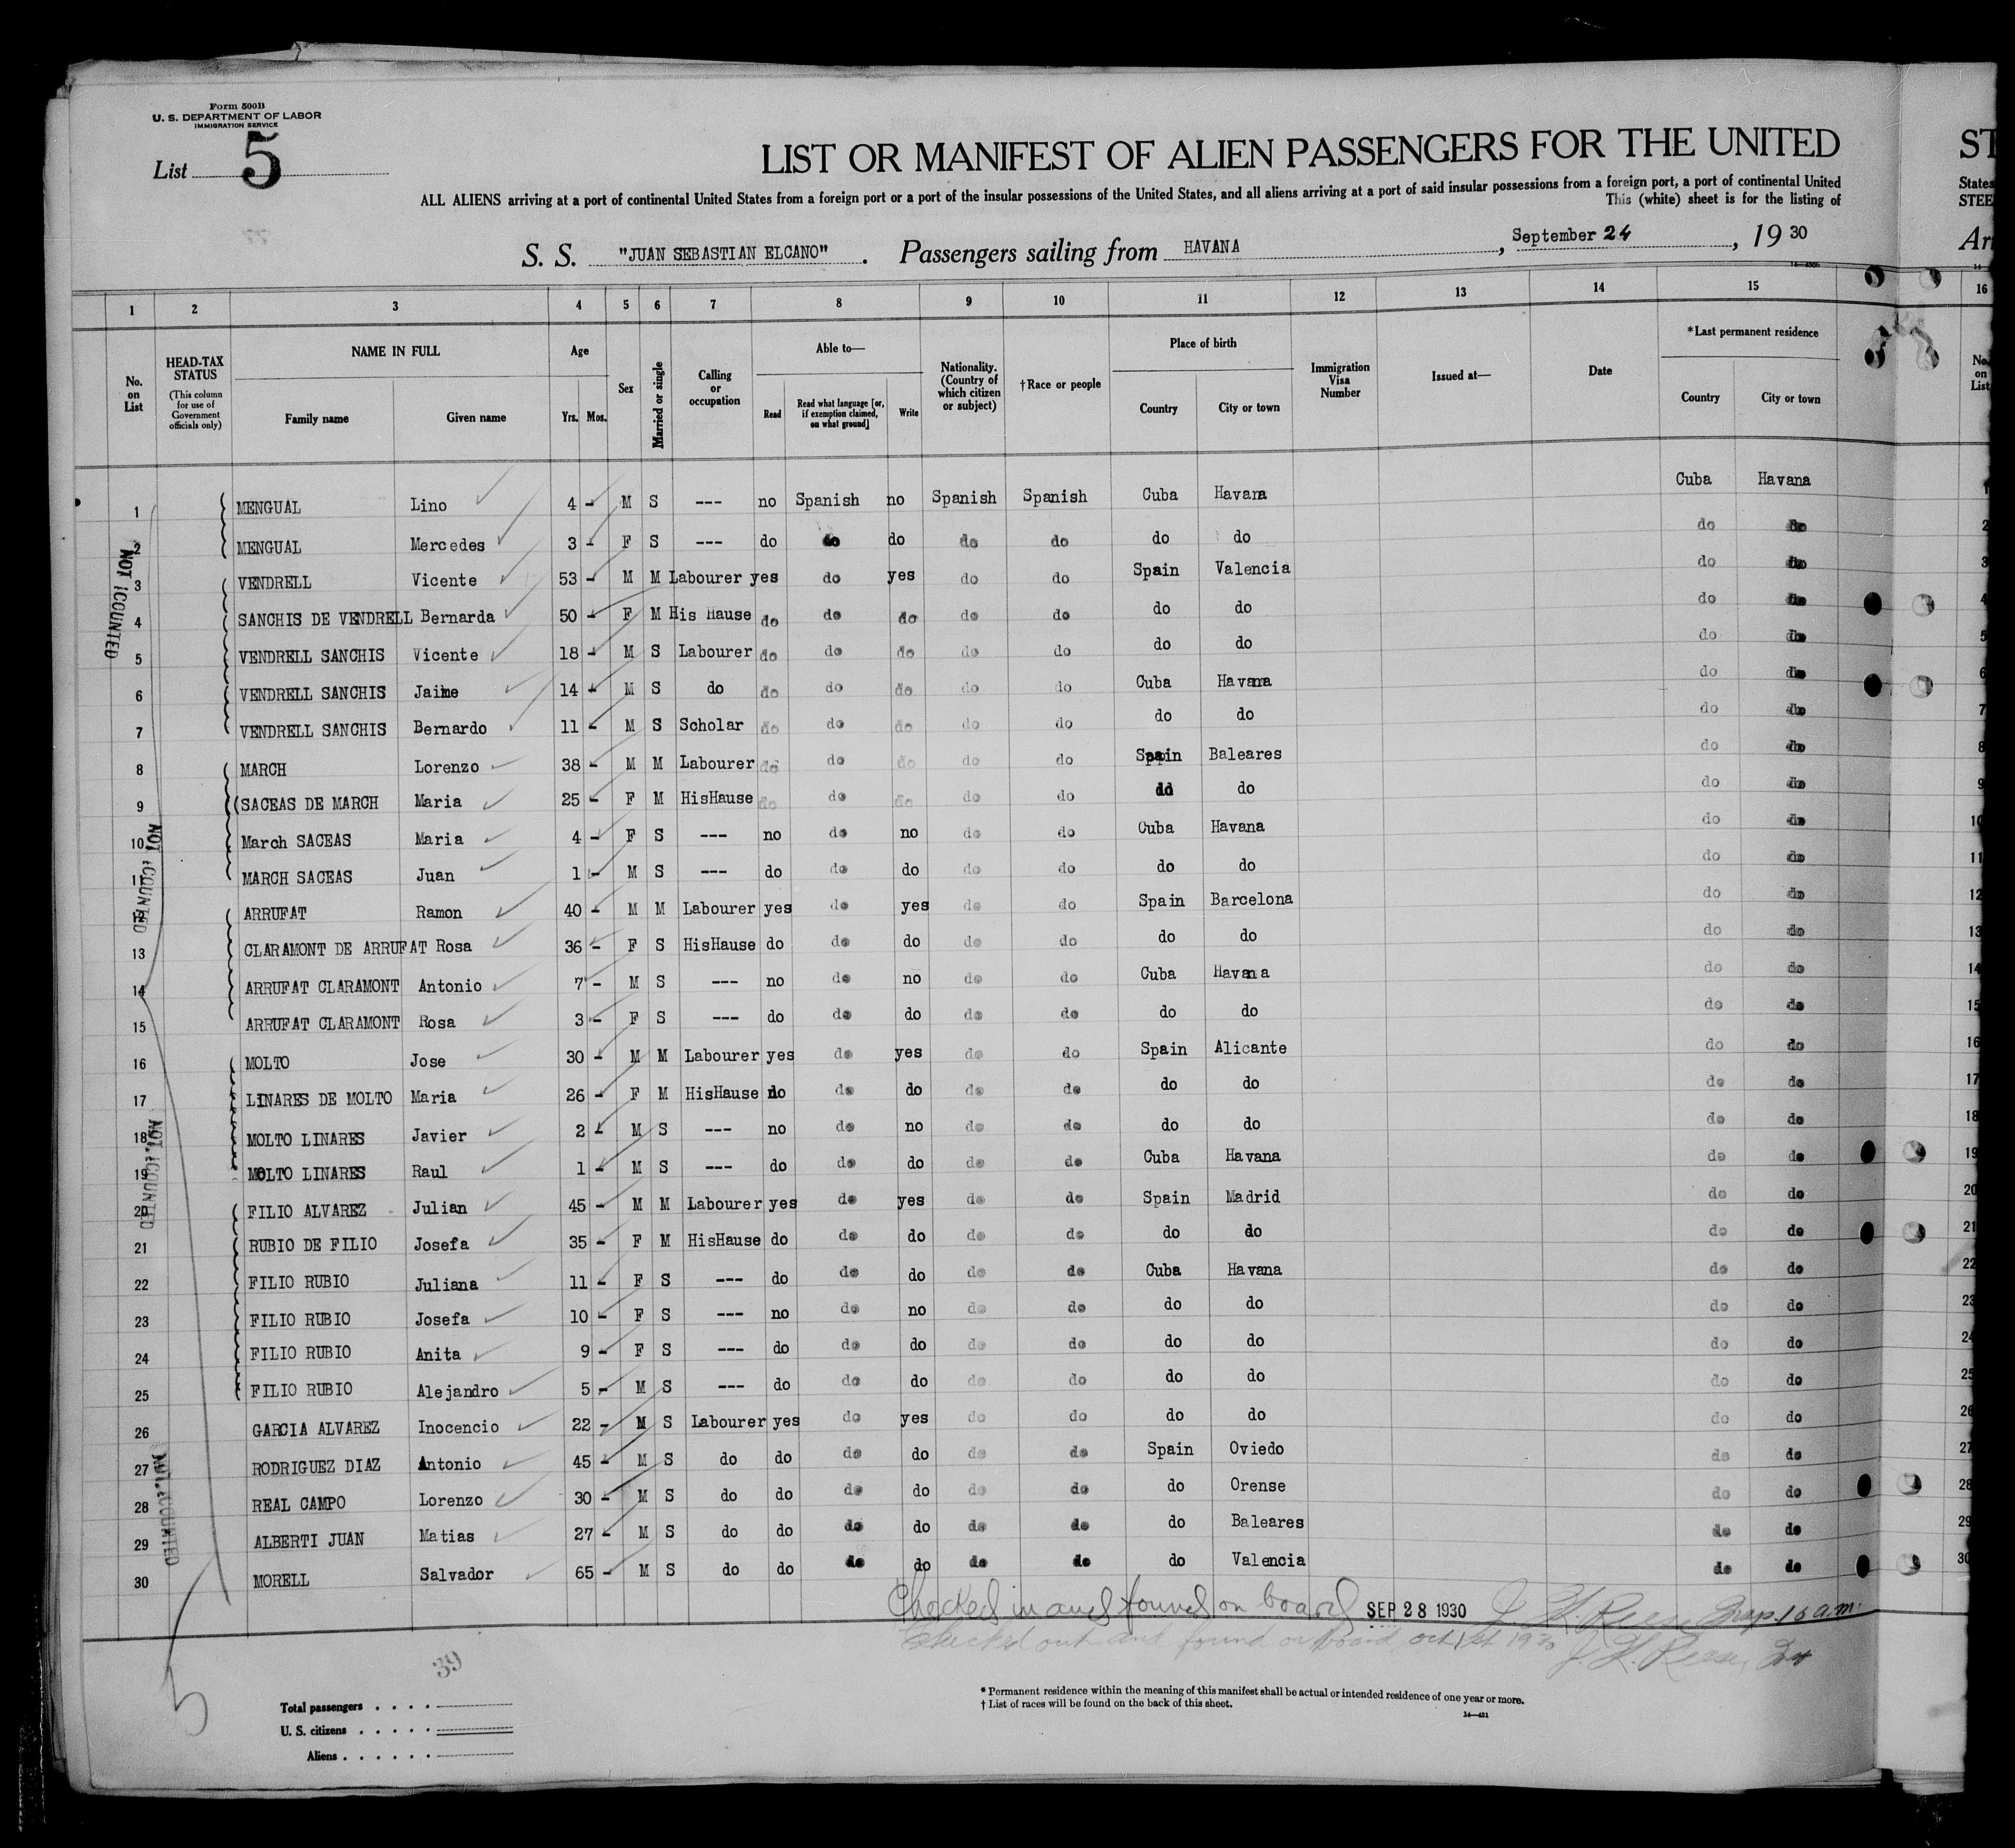 Form 500B
U. S. DEPARTMENT OF LABOR
IMMIGRATION SERVICE
List 5
LIST OR MANIFEST OF ALIEN PASSENGERS FOR THE UNITED
ST
ALL ALIENS arriving at a port of continental United States from a foreign port or a port of the insular possessions of the United States, and all aliens arriving at a port of said insular possessions from a foreign port, a port of continental United
States
This (white) sheet is for the listing of
STEE
S. S. "JUAN SEBASTIAN ELCANO". Passengers sailing from HAVANA, September 24, 1930
Ar
1 2 3 4 5 6 7 8 9 10 11 12 13 14 15 16
No. on List
HEAD-TAX STATUS (This column for use of Government officials only)
NAME IN FULL
Family name Given name
Age
Yrs. Mos.
Sex
Married or single
Calling or occupation
Able to—
Read Read what language [or, if exemption claimed, on what ground] Write
Nationality. (Country of which citizen or subject)
†Race or people
Place of birth
Country City or town
Immigration Visa Number
Issued at—
Date
*Last permanent residence
Country City or town
No. on List
1 MENGUAL Lino 4 - M S --- no Spanish no Spanish Spanish Cuba Havana Cuba Havana 1
2 MENGUAL Mercedes 3 - F S --- do do do do do do do do do 2
3 VENDRELL Vicente 53 - M M Labourer yes do yes do do Spain Valencia do do 3
4 SANCHIS DE VENDRELL Bernarda 50 - F M His Hause do do do do do do do do do 4
5 VENDRELL SANCHIS Vicente 18 - M S Labourer do do do do do do do do do 5
6 VENDRELL SANCHIS Jaime 14 - M S do do do do do do Cuba Havana do do 6
7 VENDRELL SANCHIS Bernardo 11 - M S Scholar do do do do do do do do do 7
8 MARCH Lorenzo 38 - M M Labourer do do do do do Spain Baleares do do 8
9 (SACEAS DE MARCH Maria 25 - F M HisHause do do do do do dd do do do 9
10 March SACEAS Maria 4 - F S --- no do no do do Cuba Havana do do 10
11 MARCH SACEAS Juan 1 - M S --- do do do do do do do do do 11
12 ARRUFAT Ramon 40 - M M Labourer yes do yes do do Spain Barcelona do do 12
13 CLARAMONT DE ARRUFAT Rosa 36 - F S HisHause do do do do do do do do do 13
14 ARRUFAT CLARAMONT Antonio 7 - M S --- no do no do do Cuba Havana do do 14
15 ARRUFAT CLARAMONT Rosa 3 - F S --- do do do do do do do do do 15
16 MOLTO Jose 30 - M M Labourer yes do yes do do Spain Alicante do do 16
17 LINARES DE MOLTO Maria 26 - F M HisHause do do do do do do do do do 17
18 MOLTO LINARES Javier 2 - M S --- no do no do do do do do do 18
19 MOLTO LINARES Raul 1 - M S --- do do do do do Cuba Havana do do 19
20 FILIO ALVAREZ Julian 45 - M M Labourer yes do yes do do Spain Madrid do do 20
21 RUBIO DE FILIO Josefa 35 - F M HisHause do do do do do do do do do 21
22 FILIO RUBIO Juliana 11 - F S --- do do do do do Cuba Havana do do 22
23 FILIO RUBIO Josefa 10 - F S --- no do no do do do do do do 23
24 FILIO RUBIO Anita 9 - F S --- do do do do do do do do do 24
25 FILIO RUBIO Alejandro 5 - M S --- do do do do do do do do do 25
26 GARCIA ALVAREZ Inocencio 22 - M S Labourer yes do yes do do do do do do 26
27 RODRIGUEZ DIAZ Antonio 45 - M S do do do do do do Spain Oviedo do do 27
28 REAL CAMPO Lorenzo 30 - M S do do do do do do do Orense do do 28
29 ALBERTI JUAN Matias 27 - M S do do do do do do do Baleares do do 29
30 MORELL Salvador 65 - M S do do do do do do do Valencia do do 30
NOT
NOT
NOT
NOT
Checked in and found on board SEP 28 1930 J. H. Reese Insp. 10 a.m.
Checked out and found on board Oct 1st 1930 J. H. Reese
39
5
Total passengers . . . .
U. S. citizens . . . . .
Aliens . . . . . .
* Permanent residence within the meaning of this manifest shall be actual or intended residence of one year or more.
† List of races will be found on the back of this sheet.
14—431